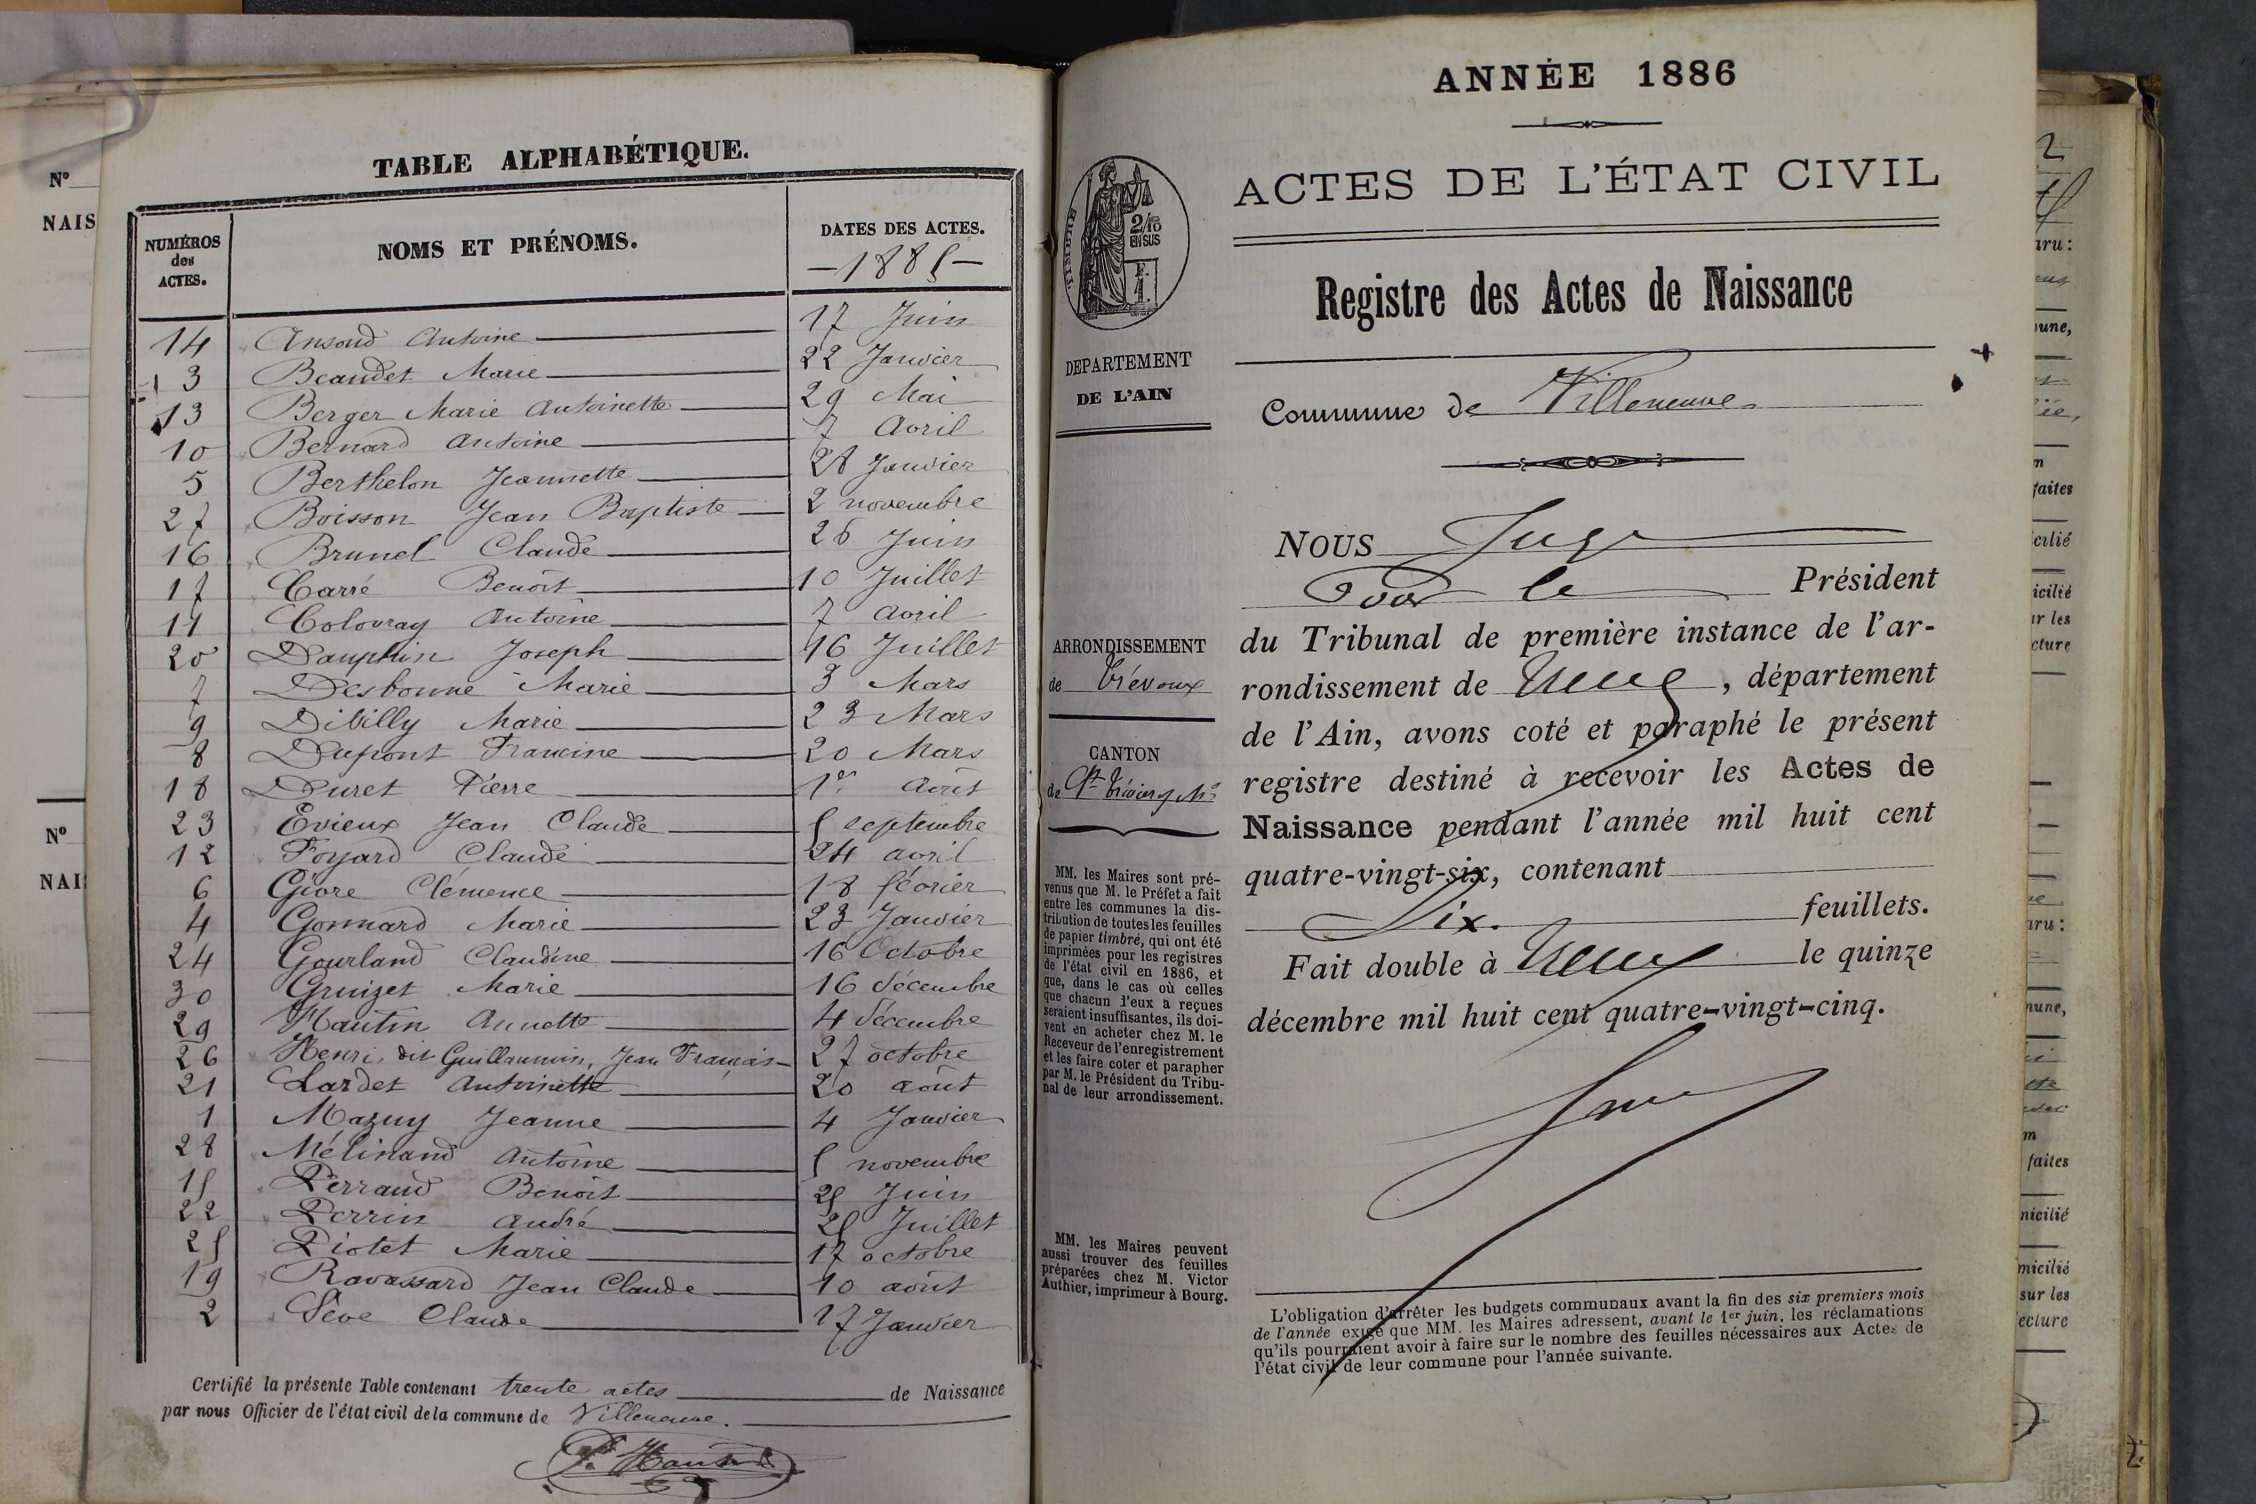 TABLE ALPHABÉTIQUE.
NUMÉROS des ACTES. NOMS ET PRÉNOMS. DATES DES ACTES. —1885—
14 Ansoud Antoine 17 Juin
3 Beaudet Marie 22 Janvier
13 Berger Marie Antoinette 29 Mai
10 Bernard Antoine 7 Avril
5 Berthelon Jeannette 28 Janvier
27 Boisson Jean Baptiste 2 novembre
16 Brunel Claude 26 Juin
17 Carré Benoît 10 Juillet
11 Colovray Antoine 7 avril
20 Dauphin Joseph 16 Juillet
7 Desbonne Marie 3 Mars
9 Dibilly Marie 23 Mars
8 Dupont Francine 20 Mars
18 Duret Pierre 1er Août
23 Evieux Jean Claude 5 septembre
12 Foyard Claude 24 avril
6 Givre Clémence 18 février
4 Gonnard Marie 23 Janvier
24 Gourland Claudine 16 Octobre
30 Gruizet Marie 16 décembre
29 Hautin Annette 4 décembre
26 Henri, dit Guillaumin, Jean Français 27 octobre
21 Lardet Antoinette 20 août
1 Mazuy Jeanne 4 Janvier
28 Mélinand Antoine 5 novembre
15 Perraud Benoît 25 Juin
22 Perrin André 25 Juillet
25 Piotet Marie 17 octobre
19 Ravassard Jean Claude 10 août
2 Sève Claude 17 Janvier
Certifié la présente Table contenant trente actes de Naissance
par nous Officier de l'état civil de la commune de Villeneuve.
Hautin
ANNÉE 1886
ACTES DE L'ÉTAT CIVIL
TIMBRE
2/10
EN SUS
F.
1.
Registre des Actes de Naissance
DEPARTEMENT
DE L'AIN
Commune de Villeneuve
NOUS Juge
Pour le Président
du Tribunal de première instance de l'ar-
rondissement de , département
de l'Ain, avons coté et paraphé le présent
registre destiné à recevoir les Actes de
Naissance pendant l'année mil huit cent
quatre-vingt-six, contenant
Six. feuillets.
Fait double à le quinze
décembre mil huit cent quatre-vingt-cinq.
ARRONDISSEMENT
de Trévoux
CANTON
de St Trivier
MM. les Maires sont pré-
venus que M. le Préfet a fait
entre les communes la dis-
tribution de toutes les feuilles
de papier timbré, qui ont été
imprimées pour les registres
de l'état civil en 1886, et
que, dans le cas où celles
que chacun d'eux a reçues
seraient insuffisantes, ils doi-
vent en acheter chez M. le
Receveur de l'enregistrement
et les faire coter et parapher
par M. le Président du Tribu-
nal de leur arrondissement.
MM. les Maires peuvent
aussi trouver des feuilles
préparées chez M. Victor
Authier, imprimeur à Bourg.
L'obligation d'arrêter les budgets communaux avant la fin des six premiers mois
de l'année exige que MM. les Maires adressent, avant le 1er juin, les réclamations
qu'ils pourraient avoir à faire sur le nombre des feuilles nécessaires aux Actes de
l'état civil de leur commune pour l'année suivante.
N°
NAIS
N°
NAI
2
aru:
mune,
faites
cilié
icilié
ur les
cture
aru:
mune,
faites
micilié
micilié
sur les
lecture